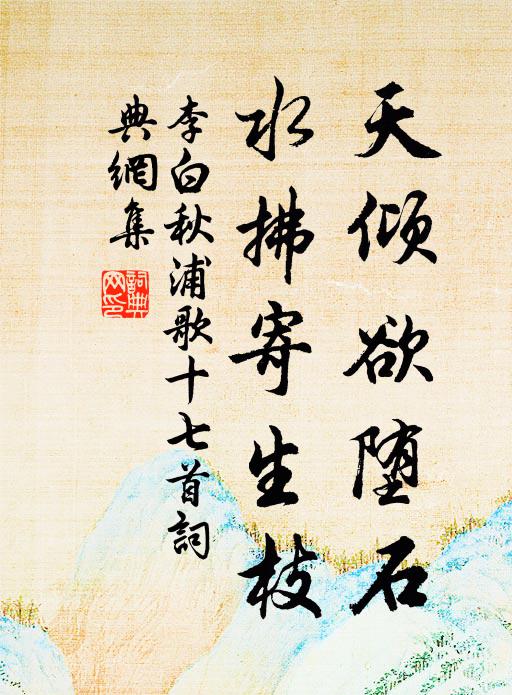 天傾欲堕石
水拂寄生枝
李白秋浦歌十七首詞
典網集
詞典網印